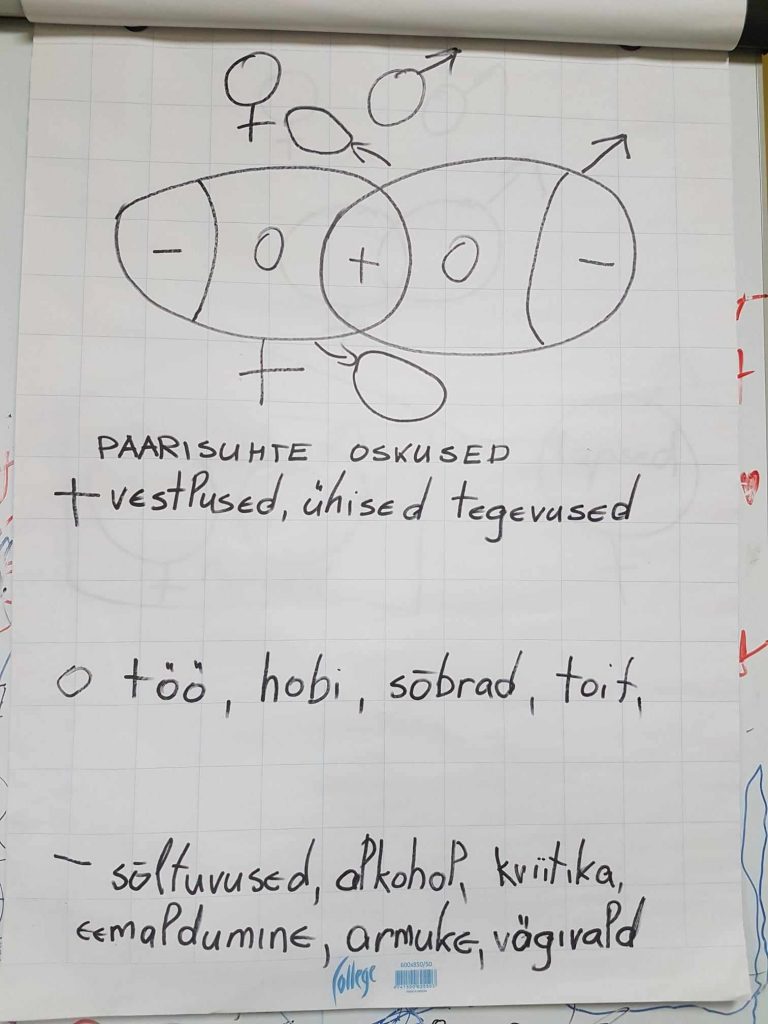 - 0 + 0 -
PAARISUHTE OSKUSED
+ vestlused, ühised tegevused
0 töö, hobi, sõbrad, toit,
- sõltuvused, alkohol, kriitika,
eemaldumine, armuke, vägivald
600x850/50
College